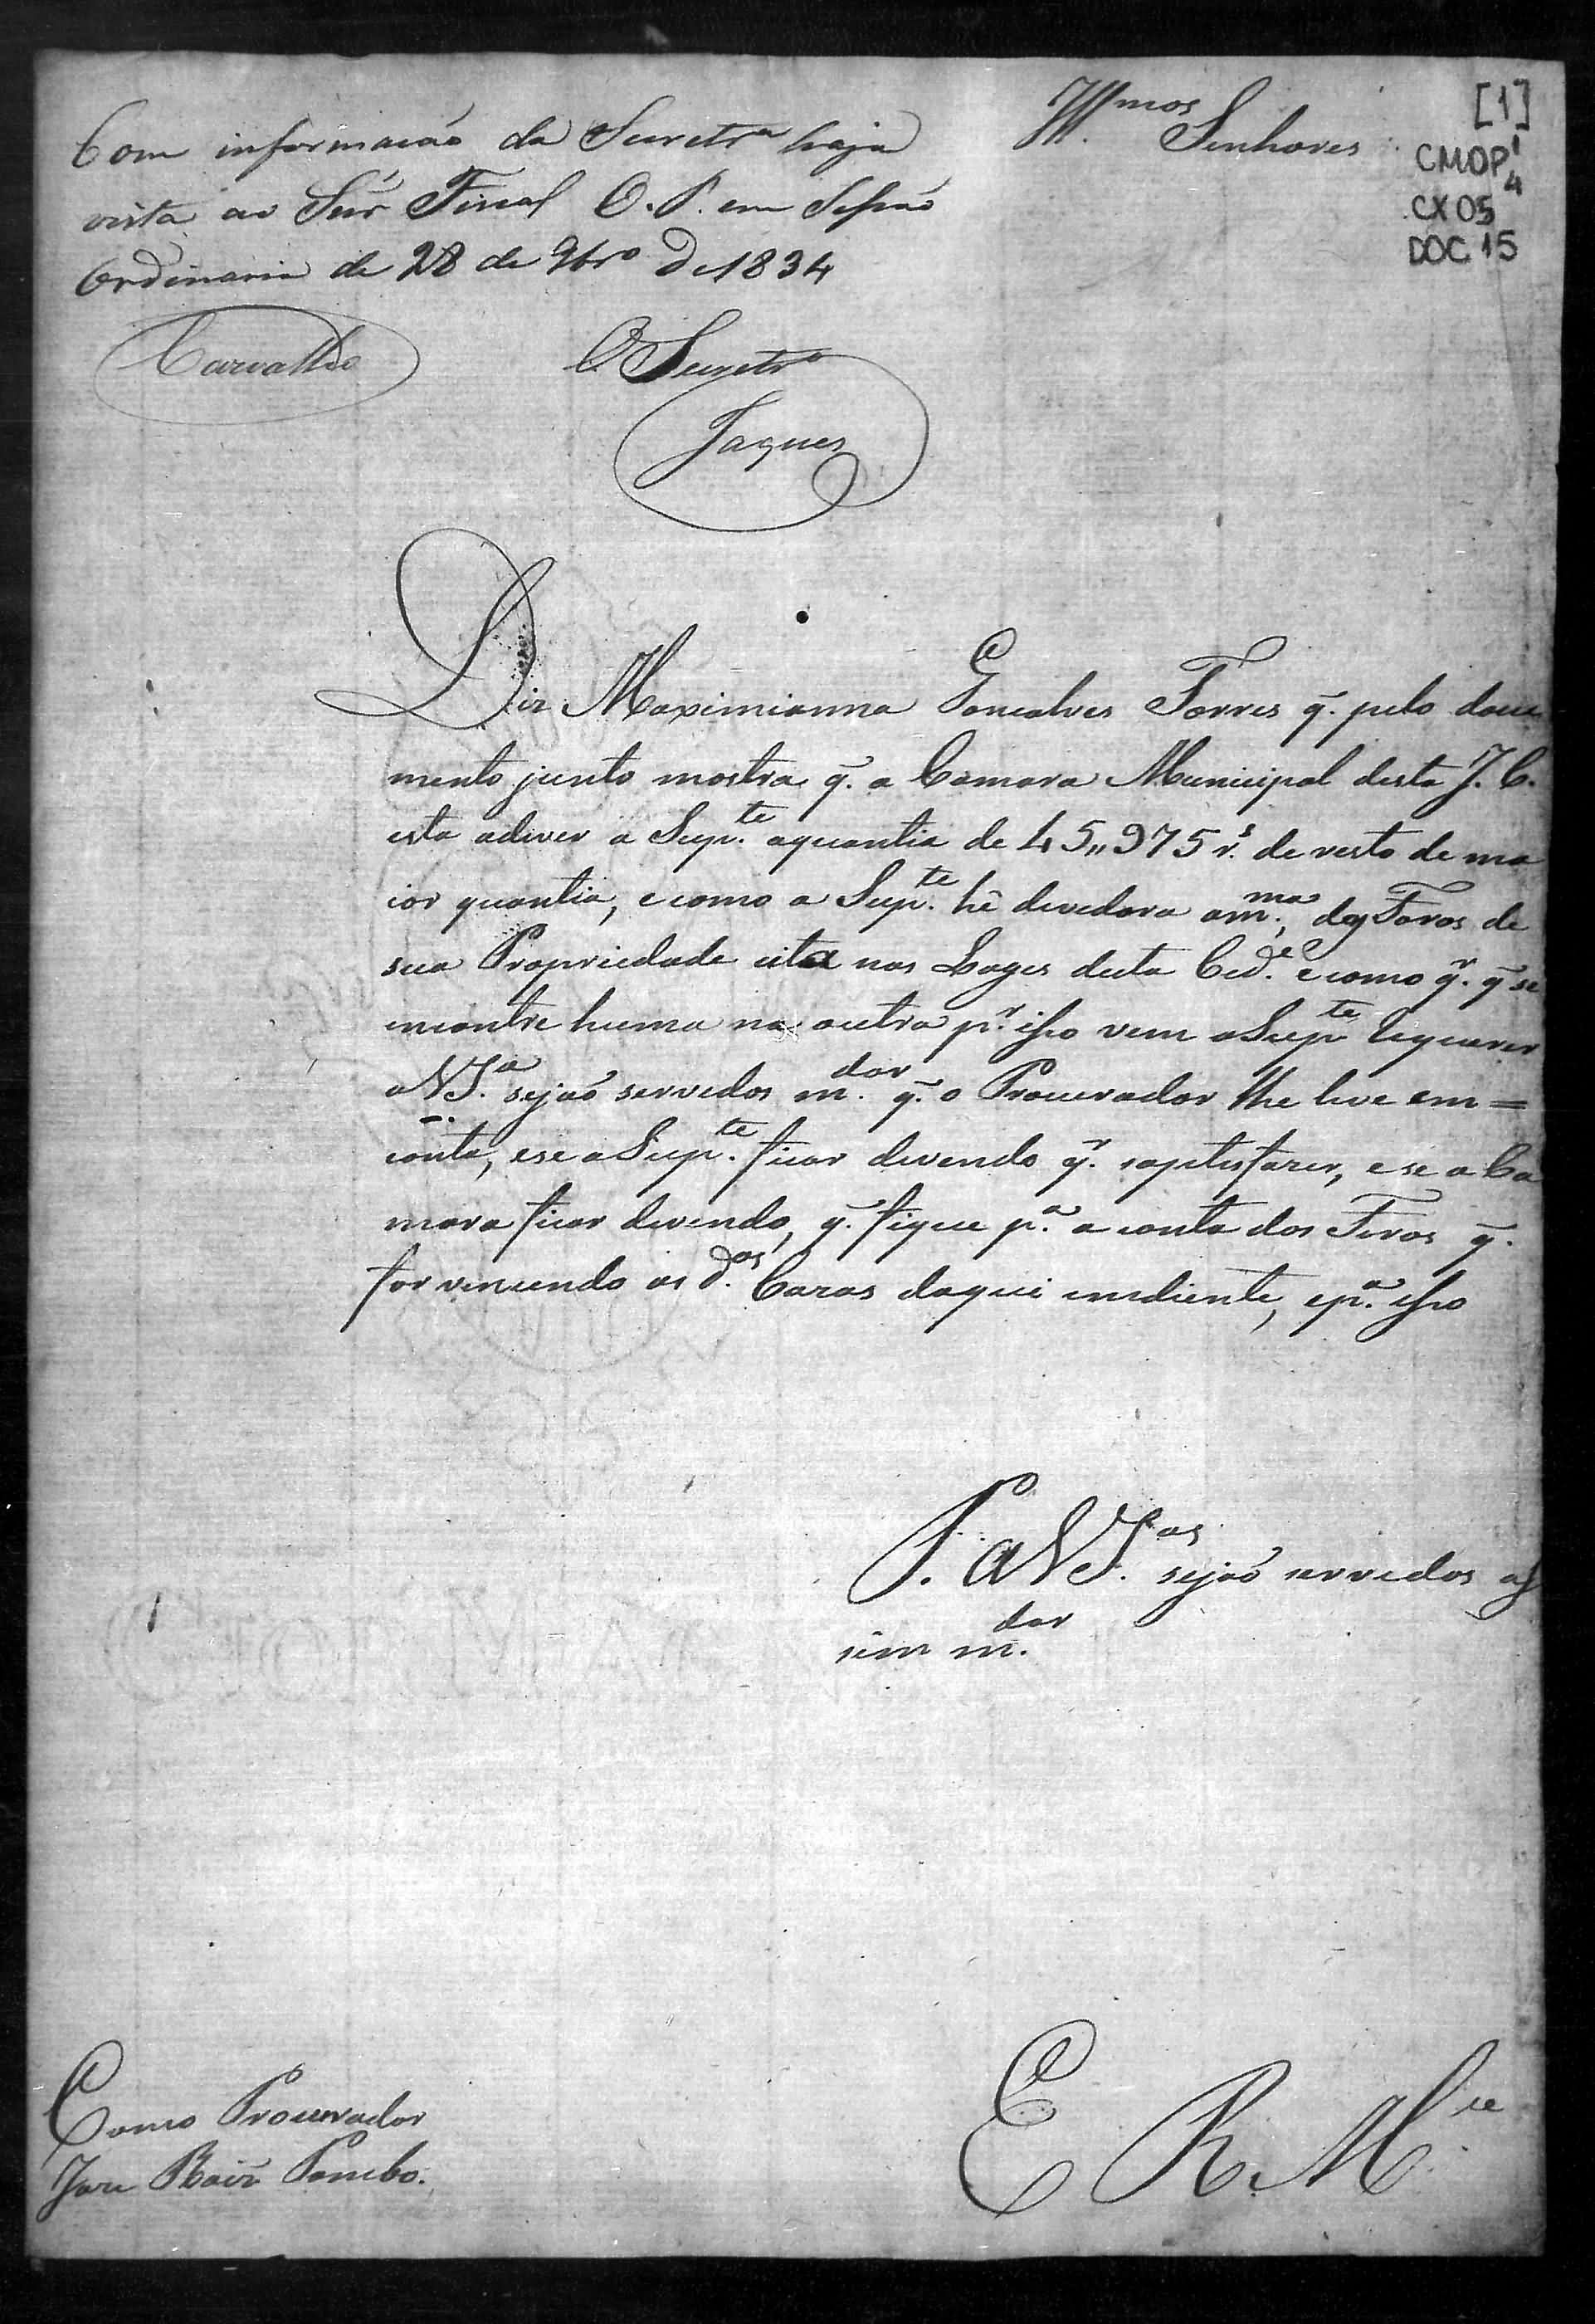 Illmos Senhores
[1]
CMOP 1/4
CX 05
DOC 15
Com informacaõ da Secretrª haja
vista ao Snr. Fiscal O. P. em Sessaõ
Ordinaria de 28 de 9bro de 1834
Carvalho
O Secretrº
Jaques
Diz Maximianna Goncalves Torres q̃. pelo docu
mento junto mostra q̃. a Camara Municipal desta I. C.
esta adever a Supte. aquantia de 45,,975 rs. de resto de ma
ior quantia, e como a Supte. hê devedora amma. dos Foros de
sua Propriedade cita nas Lages desta Cide. e como qr. q̃ se
encontre huma na outra pr. isso vem a Supte Requerer
a V Sª. sejaõ servidos mdar. q̃. o Procurador lhe leve em=
conta, e se a Supte. ficar devendo qr. saptisfazer, e se a Ca
mara ficar devendo, q̃. fique pª. a conta dos Foros q̃.
for vencendo as das. Cazas daqui emdiente, epª. isso
P. a V Sas. sejaõ servidos as
sim mdar.
E R Mce.
Como Procurador
Joze Pombo.